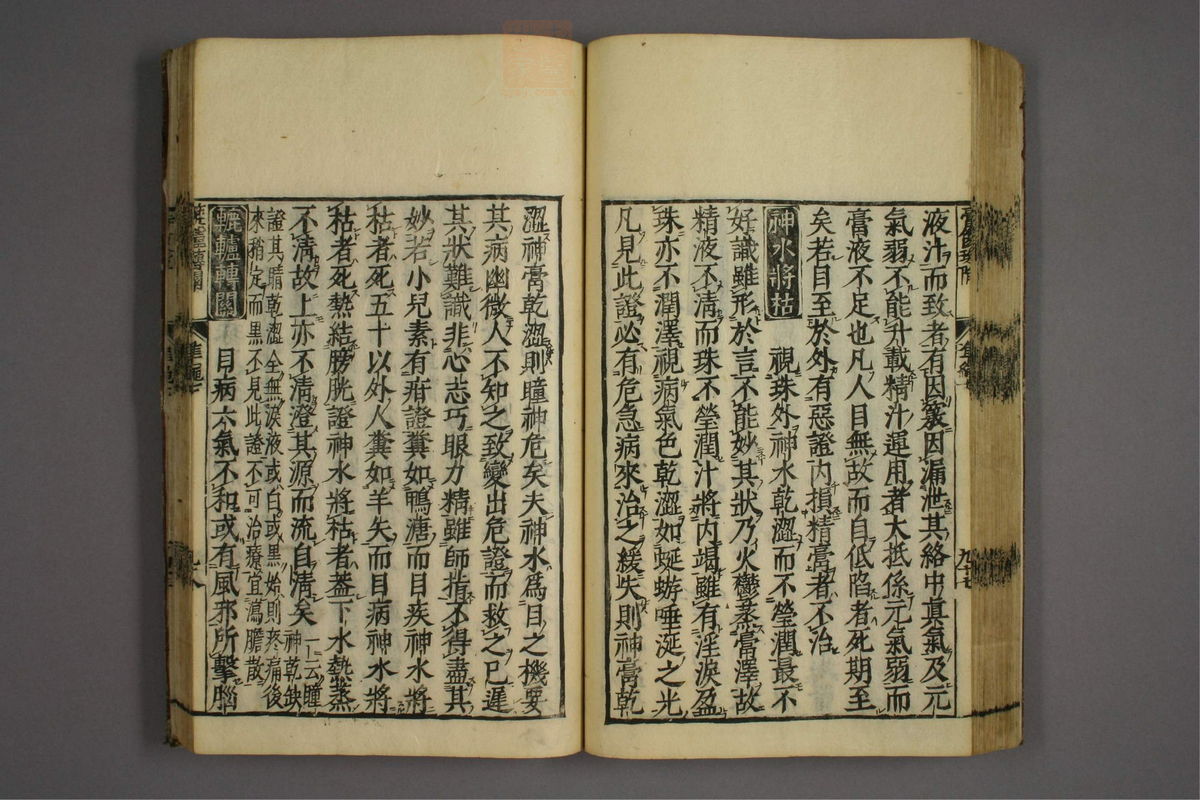 液汁而致者有因竅因漏泄其絡中眞氣及元
氣弱不能升載精汁運用者大抵係元氣弱而
膏液不足也凡人目無故而自低陷者死期至
矣若目至於外有惡證内損精膏者不治
神水將枯 視珠外神水乾澀而不瑩潤最不
好識雖形於言不能妙其狀乃火鬱蒸膏澤故
精液不清而珠不瑩潤汁將内竭雖有淫淚盈
珠亦不潤澤視病氣色乾澀如蜒蝣唾涎之光
凡見此證必有危急病來治之緩失則神膏乾
澀神膏乾澀則瞳神危矣夫神水爲目之機要
其病幽微人不知之致變出危證而救之已遲
其狀難識非心志巧眼力精雖師指不得盡其
妙若小兒素有疳證糞如鴨溏而目疾神水將
枯者死五十以外人糞如羊矢而目病神水將
枯者死熱結膀胱證神水將枯者蓋下水熱蒸
不淸故上亦不清澄其源而流自淸矣
一云瞳神乾缺
證其睛乾澀全無淚液或白或黑始則疼痛後
來稍定而黑不見此證不可治療宜瀉膽散
轆轤轉關 目病六氣不和或有風邪所擊腦